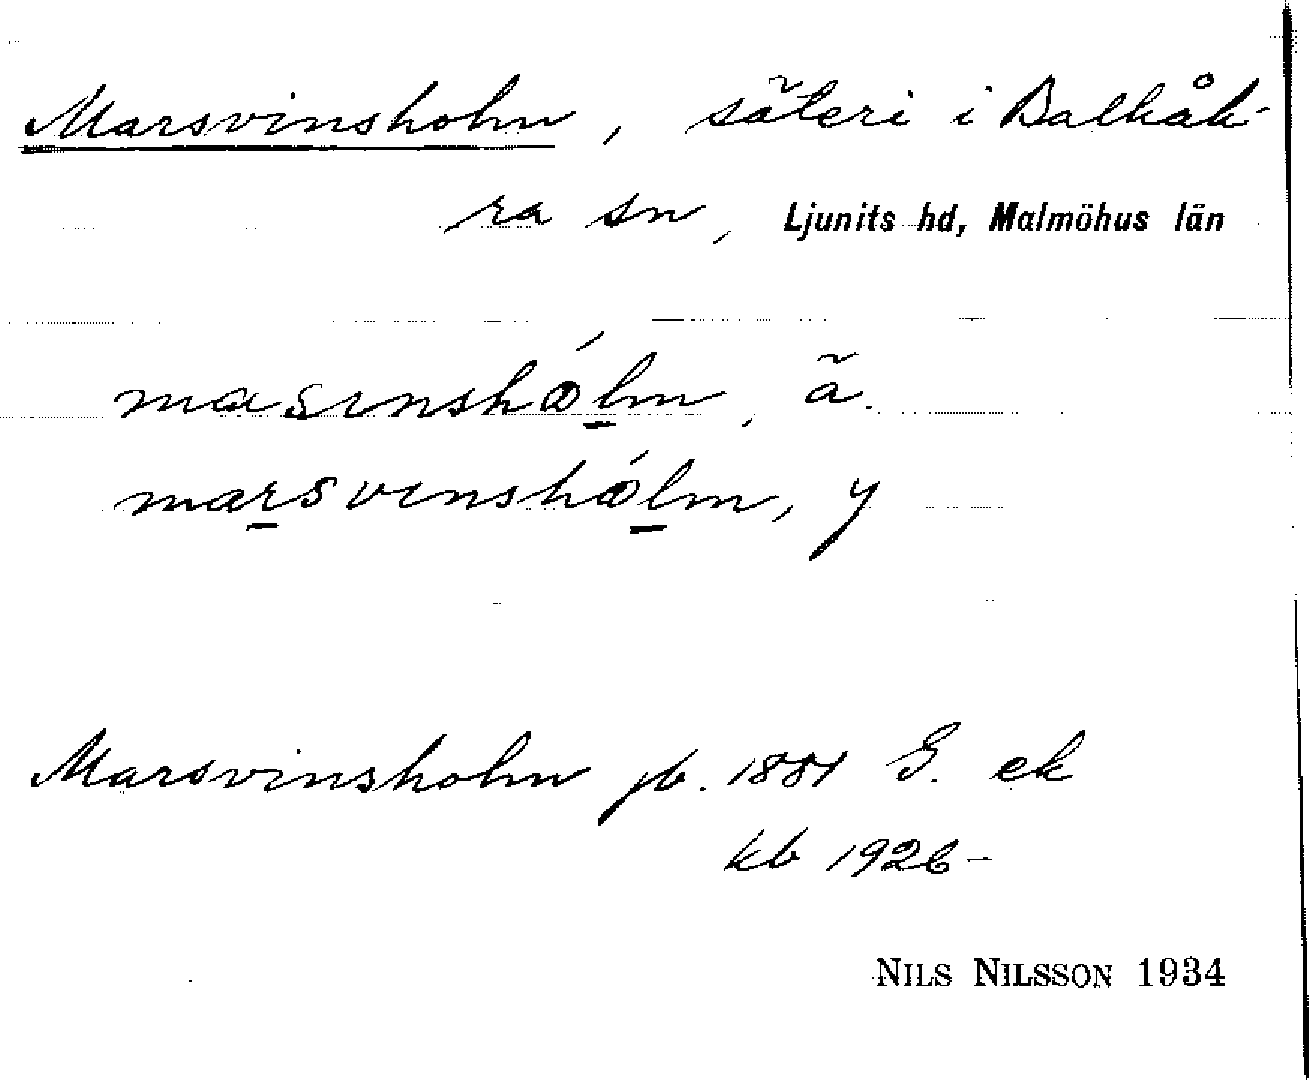 Marsvinsholm, säteri i Balkåk-
ra sn, Ljunits hd, Malmöhus län
masınshólm, ä.
marsvınshólm, y
Marsvinsholm jb. 1881 G. ek
kb 1926-
NILS NILSSON 1934